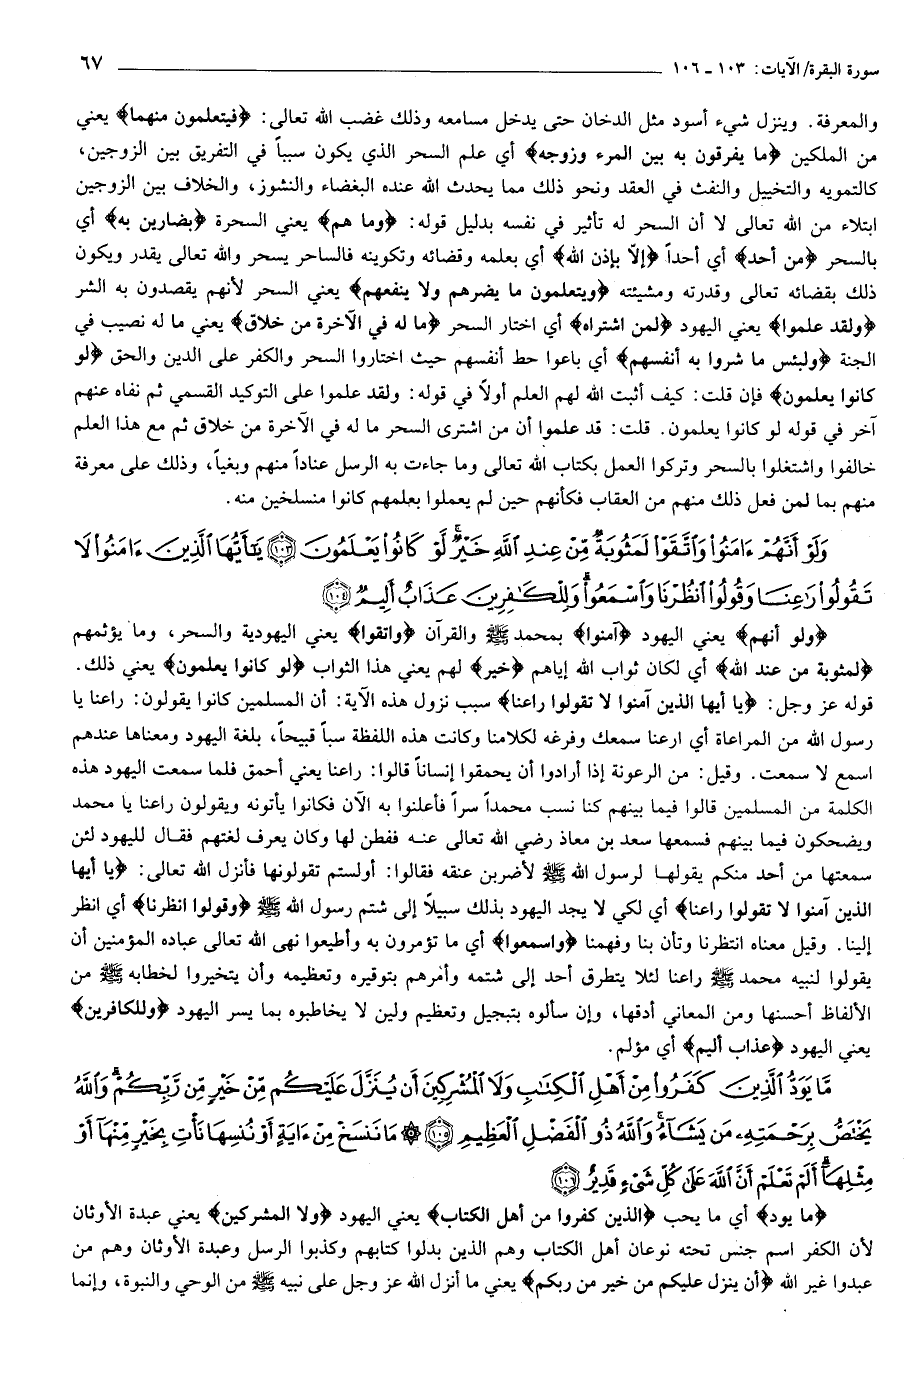 سورة البقرة/ الآيات: ١٠٣ ـ ١٠٦ ٦٧
والمعرفة. وينزل شيء أسود مثل الدخان حتى يدخل مسامعه وذلك غضب الله تعالى: ﴿فيتعلمون منهما﴾ يعني
من الملكين ﴿ما يفرقون به بين المرء وزوجه﴾ أي علم السحر الذي يكون سبباً في التفريق بين الزوجين،
كالتمويه والتخييل والنفث في العقد ونحو ذلك مما يحدث الله عنده البغضاء والنشوز، والخلاف بين الزوجين
ابتلاء من الله تعالى لا أن السحر له تأثير في نفسه بدليل قوله: ﴿وما هم﴾ يعني السحرة ﴿بضارين به﴾ أي
بالسحر ﴿من أحد﴾ أي أحداً ﴿إلاّ بإذن الله﴾ أي بعلمه وقضائه وتكوينه فالساحر يسحر والله تعالى يقدر ويكون
ذلك بقضائه تعالى وقدرته ومشيئته ﴿ويتعلمون ما يضرهم ولا ينفعهم﴾ يعني السحر لأنهم يقصدون به الشر
﴿ولقد علموا﴾ يعني اليهود ﴿لمن اشتراه﴾ أي اختار السحر ﴿ما له في الآخرة من خلاق﴾ يعني ما له نصيب في
الجنة ﴿ولبئس ما شروا به أنفسهم﴾ أي باعوا حظ أنفسهم حيث اختاروا السحر والكفر على الدين والحق ﴿لو
كانوا يعلمون﴾ فإن قلت: كيف أثبت الله لهم العلم أولاً في قوله: ولقد علموا على التوكيد القسمي ثم نفاه عنهم
آخر في قوله لو كانوا يعلمون. قلت: قد علموا أن من اشترى السحر ما له في الآخرة من خلاق ثم مع هذا العلم
خالفوا واشتغلوا بالسحر وتركوا العمل بكتاب الله تعالى وما جاءت به الرسل عناداً منهم وبغياً، وذلك على معرفة
منهم بما لمن فعل ذلك منهم من العقاب فكأنهم حين لم يعملوا بعلمهم كانوا منسلخين منه.
وَلَوْ أَنَّهُمْ ءَامَنُوا۟ وَٱتَّقَوْا۟ لَمَثُوبَةٌ مِّنْ عِندِ ٱللَّهِ خَيْرٌ ۖ لَّوْ كَانُوا۟ يَعْلَمُونَ ﴿١٠٣﴾ يَٰٓأَيُّهَا ٱلَّذِينَ ءَامَنُوا۟ لَا
تَقُولُوا۟ رَٰعِنَا وَقُولُوا۟ ٱنظُرْنَا وَٱسْمَعُوا۟ ۗ وَلِلْكَٰفِرِينَ عَذَابٌ أَلِيمٌ ﴿١٠٤﴾
﴿ولو أنهم﴾ يعني اليهود ﴿آمنوا﴾ بمحمد ﷺ والقرآن ﴿واتقوا﴾ يعني اليهودية والسحر، وما يؤثمهم
﴿لمثوبة من عند الله﴾ أي لكان ثواب الله إياهم ﴿خير﴾ لهم يعني هذا الثواب ﴿لو كانوا يعلمون﴾ يعني ذلك.
قوله عز وجل: ﴿يا أيها الذين آمنوا لا تقولوا راعنا﴾ سبب نزول هذه الآية: أن المسلمين كانوا يقولون: راعنا يا
رسول الله من المراعاة أي ارعنا سمعك وفرغه لكلامنا وكانت هذه اللفظة سباً قبيحاً، بلغة اليهود ومعناها عندهم
اسمع لا سمعت. وقيل: من الرعونة إذا أرادوا أن يحمقوا إنساناً قالوا: راعنا يعني أحمق فلما سمعت اليهود هذه
الكلمة من المسلمين قالوا فيما بينهم كنا نسب محمداً سراً فأعلنوا به الآن فكانوا يأتونه ويقولون راعنا يا محمد
ويضحكون فيما بينهم فسمعها سعد بن معاذ رضي الله تعالى عنه ففطن لها وكان يعرف لغتهم فقال لليهود لئن
سمعتها من أحد منكم يقولها لرسول الله ﷺ لأضربن عنقه فقالوا: أولستم تقولونها فأنزل الله تعالى: ﴿يا أيها
الذين آمنوا لا تقولوا راعنا﴾ أي لكي لا يجد اليهود بذلك سبيلاً إلى شتم رسول الله ﷺ ﴿وقولوا انظرنا﴾ أي انظر
إلينا. وقيل معناه انتظرنا وتأن بنا وفهمنا ﴿واسمعوا﴾ أي ما تؤمرون به وأطيعوا نهى الله تعالى عباده المؤمنين أن
يقولوا لنبيه محمد ﷺ راعنا لئلا يتطرق أحد إلى شتمه وأمرهم بتوقيره وتعظيمه وأن يتخيروا لخطابه ﷺ من
الألفاظ أحسنها ومن المعاني أدقها، وإن سألوه بتبجيل وتعظيم ولين لا يخاطبوه بما يسر اليهود ﴿وللكافرين﴾
يعني اليهود ﴿عذاب أليم﴾ أي مؤلم.
مَّا يَوَدُّ ٱلَّذِينَ كَفَرُوا۟ مِنْ أَهْلِ ٱلْكِتَٰبِ وَلَا ٱلْمُشْرِكِينَ أَن يُنَزَّلَ عَلَيْكُم مِّنْ خَيْرٍ مِّن رَّبِّكُمْ ۗ وَٱللَّهُ
يَخْتَصُّ بِرَحْمَتِهِۦ مَن يَشَآءُ ۚ وَٱللَّهُ ذُو ٱلْفَضْلِ ٱلْعَظِيمِ ﴿١٠٥﴾ ۞ مَا نَنسَخْ مِنْ ءَايَةٍ أَوْ نُنسِهَا نَأْتِ بِخَيْرٍ مِّنْهَآ أَوْ
مِثْلِهَآ ۗ أَلَمْ تَعْلَمْ أَنَّ ٱللَّهَ عَلَىٰ كُلِّ شَىْءٍ قَدِيرٌ ﴿١٠٦﴾
﴿ما يود﴾ أي ما يحب ﴿الذين كفروا من أهل الكتاب﴾ يعني اليهود ﴿ولا المشركين﴾ يعني عبدة الأوثان
لأن الكفر اسم جنس تحته نوعان أهل الكتاب وهم الذين بدلوا كتابهم وكذبوا الرسل وعبدة الأوثان وهم من
عبدوا غير الله ﴿أن ينزل عليكم من خير من ربكم﴾ يعني ما أنزل الله عز وجل على نبيه ﷺ من الوحي والنبوة، وإنما